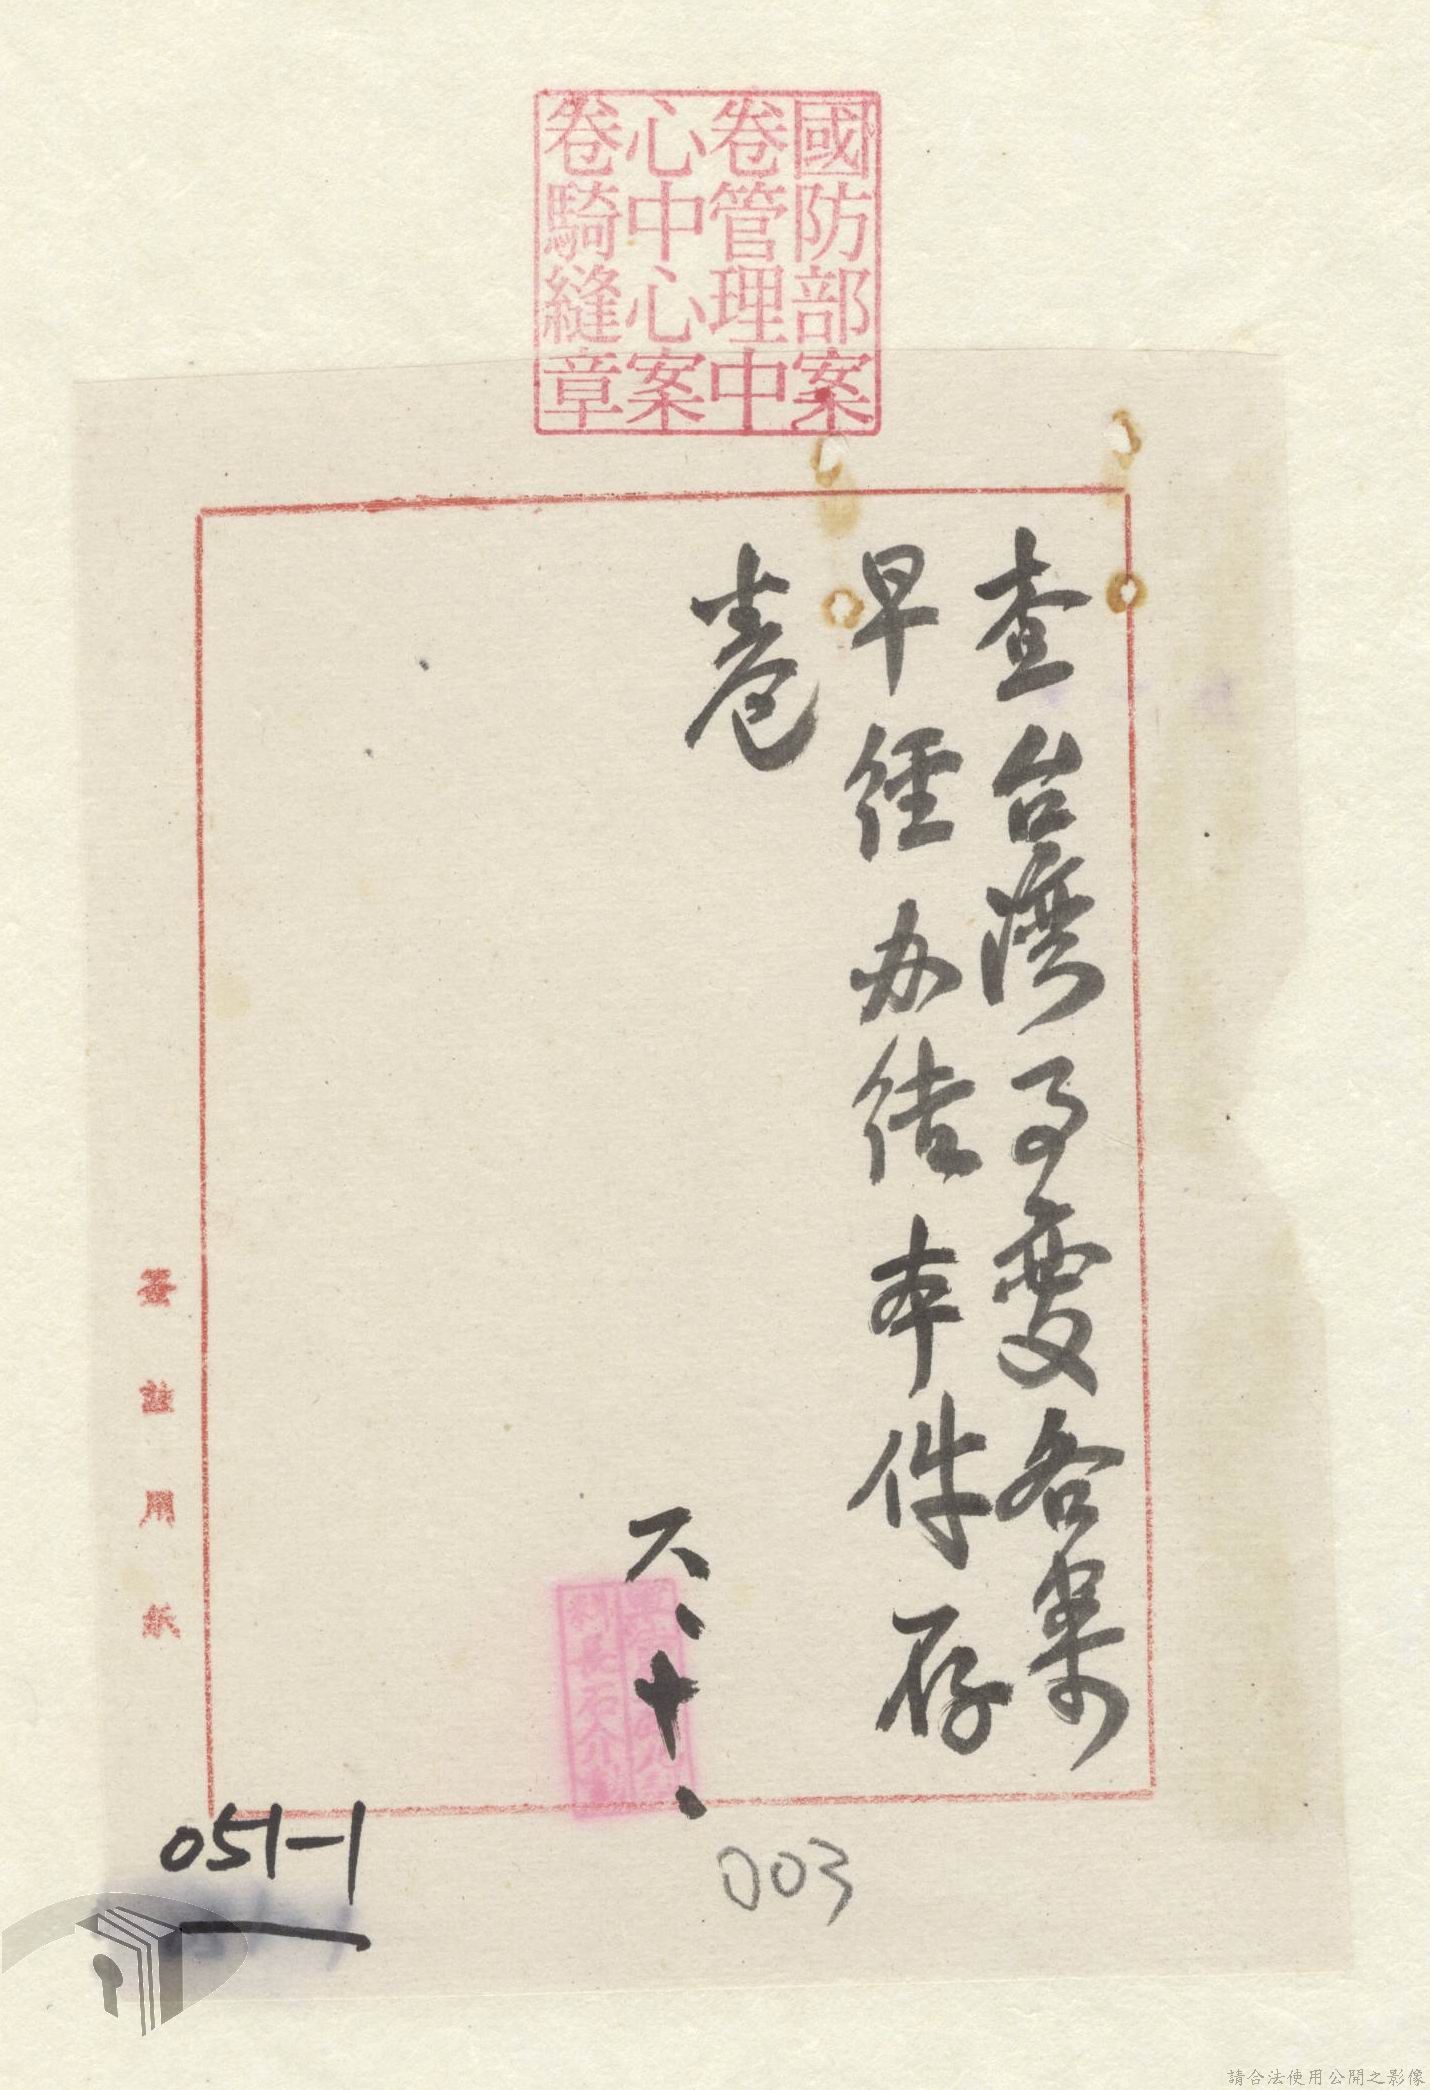 國防部案
卷管理中
心中心案
卷騎縫章
查台灣事變各案
早經办结本件存
卷
六、十、
簽註用紙
051-1
003
請合法使用公開之影像